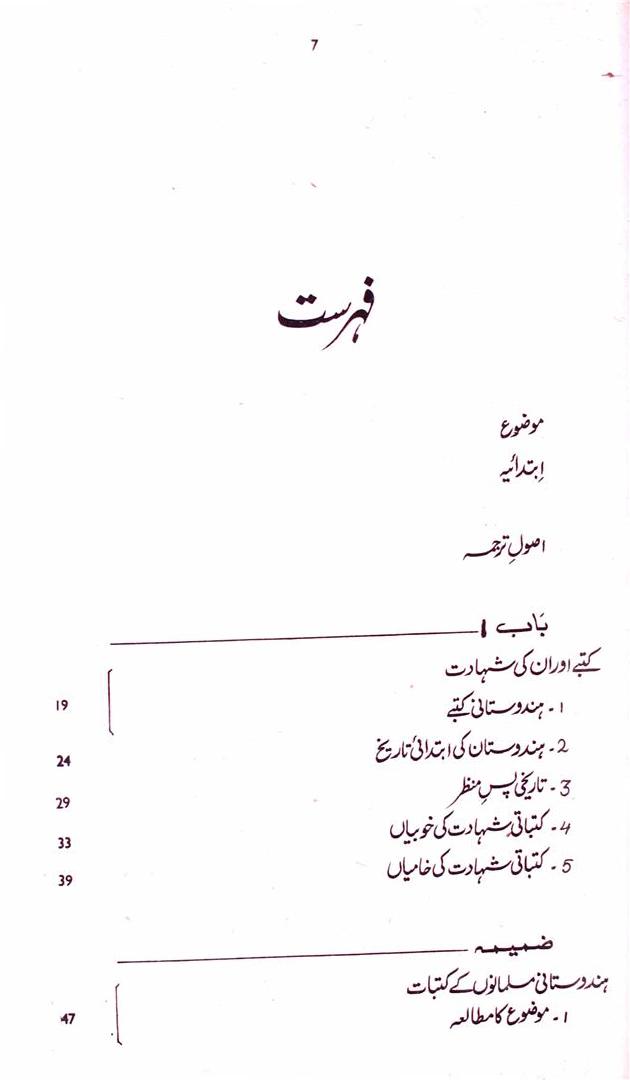 7
فہرست
موضوع
اِبتدائیہ
اصولِ ترجمہ
باب 1
کتبے اور ان کی شہادت
1۔ ہندوستانی کتبے 19
2۔ ہندوستان کی ابتدائی تاریخ 24
3۔ تاریخی پسِ منظر 29
4۔ کتباتی شہادت کی خوبیاں 33
5۔ کتباتی شہادت کی خامیاں 39
ضمیمہ
ہندوستانی مسلمانوں کے کتبات
1۔ موضوع کا مطالعہ 47